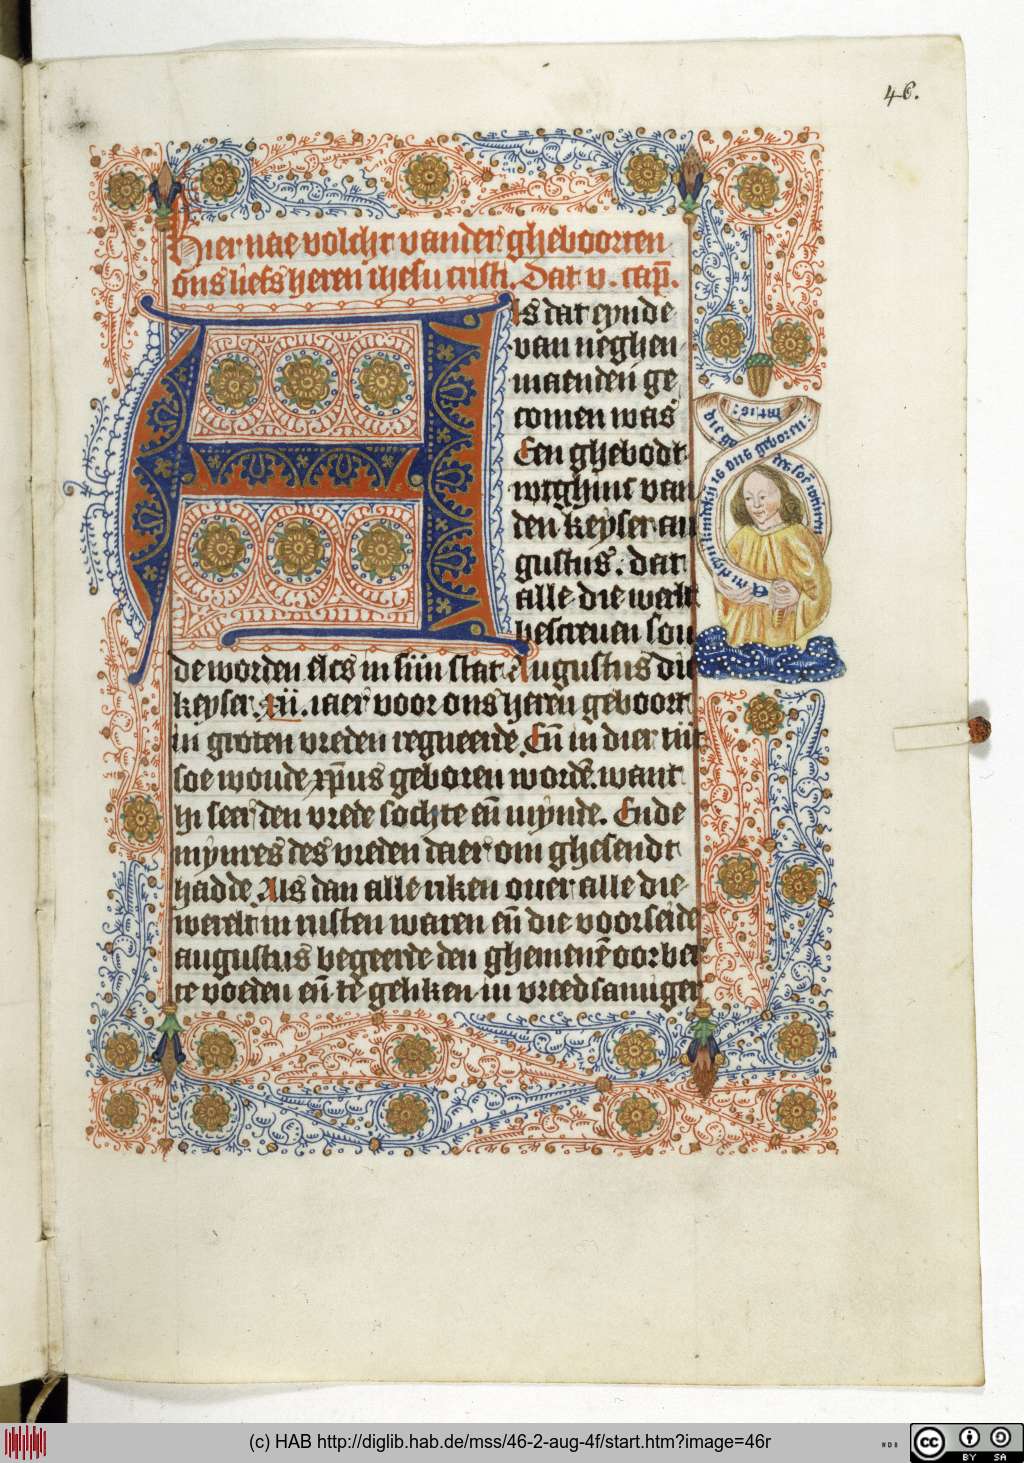 46.
Hier nae volcht vander gheboorten
ons liefs heren ihesu cristi. Dat v. cap̄.
Als dat eynde
van neghen
maenden ge
comen was
Een ghebodt
wtghinc van
den keyser au
gustus. dat
alle die werlt
bescreuen sou
de worden elcs in siin stat Augustus die
keyser. xii. iaer voor ons herē geboort
in groten vreden regneerde Eñ in dier tiit
soe woude xp̄us geboren wordē. want
hi seer den vrede sochte eñ mynde. Ende
mynres des vreden daer om ghesendt
hadde Als dan alle riken ouer alle die
werelt in rusten waren eñ die voorseide
augustus begeerde den ghemenē oorber
te voeden eñ te geliken in vreedsamiger
die
geboren:
(c) HAB http://diglib.hab.de/mss/46-2-aug-4f/start.htm?image=46r
cc
BY SA